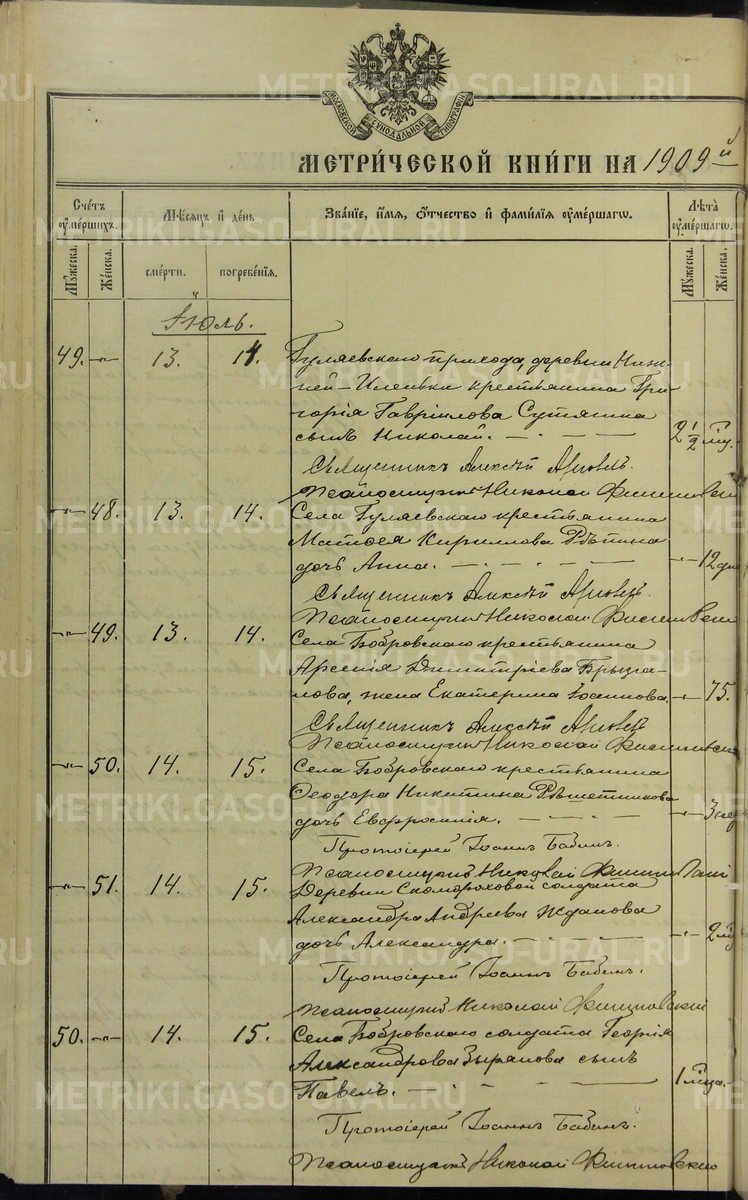 МОСКОВСКОЙ СѴНОДАЛЬНОЙ ТИПОГРАФІИ
МЕТРИ́ЧЕСКОЙ КНИ́ГИ НА 1909 й
Сче́тъ ᲂу҆ме́ршихъ.
Мѣ́сяцъ и҆ де́нь
Зва́нїе, и҆́мя, ѻ҆́тчество и҆ фами́лїя ᲂу҆ме́ршагѡ.
Лѣ́та ᲂу҆ме́ршагѡ.
Мꙋ́жеска.
Же́нска.
сме́рти.
погребе́нїя.
Мꙋ́жеска.
Же́нска.
Іюль.
49. —„— 13. 14. Гуляевскаго прихода, деревни Ниж-
ней-Иленьки крестьянина Гри-
горія Гавріилова Сутягина
сынъ Николай. 2 1/2 мц.
Священникъ Алексѣй
Псаломщикъ Николай
—„— 48. 13. 14. Села Гуляевскаго крестьянина
Матѳея Кириллова Рѣпина
дочь Анна. —„— 12 дн
Священникъ Алексѣй
Псаломщикъ Николай
—„— 49. 13. 14. Села Бобровскаго крестьянина
Арсенія Димитріева
жена Екатерина Іоаннова. —„— 75.
Священникъ Алексѣй
Псаломщикъ Николай
—„— 50. 14. 15. Села Бобровскаго крестьянина
Ѳеодора Никитина Рѣшетникова
дочь Евфросинія. —„— 3 нед
Протоіерей Іоаннъ Бабинъ.
Псаломщикъ Николай
—„— 51. 14. 15. Деревни Скомороховой солдата
Александра Андреева Жданова
дочь Александра. —„— 2
Протоіерей Іоаннъ Бабинъ.
Псаломщикъ Николай
50. —„— 14. 15. Села Бобровскаго солдата Георгія
Александрова Зырянова сынъ
Павелъ. 1 мѣсца.
Протоіерей Іоаннъ Бабинъ.
Псаломщикъ Николай
METRIKI.GASO-URAL.RU